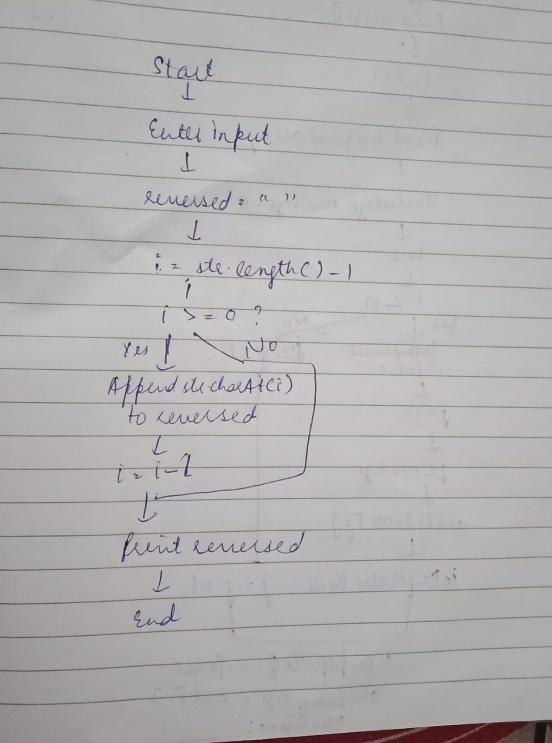 Start
Enter input
reversed = " "
i = str.length() - 1
i >= 0 ?
Yes No
Append str.charAt(i)
to reversed
i = i - 1
Print reversed
End